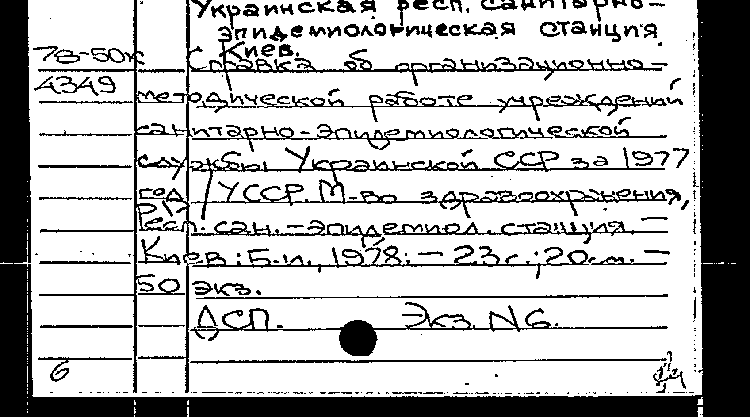 Украинская респ. санитарно-
эпидемиологическая станция
Киев.
78-50к Справка об организационно-
4349
методической работе учреждений
санитарно-эпидемиологической
службы Украинской ССР за 1977
год / УССР. М-во здравоохранения,
Респ. сан.-эпидемиол. станция. -
Киев: Б.и., 1978. - 23 с.; 20 см. -
50 экз.
ДСП. Экз. N6.
6